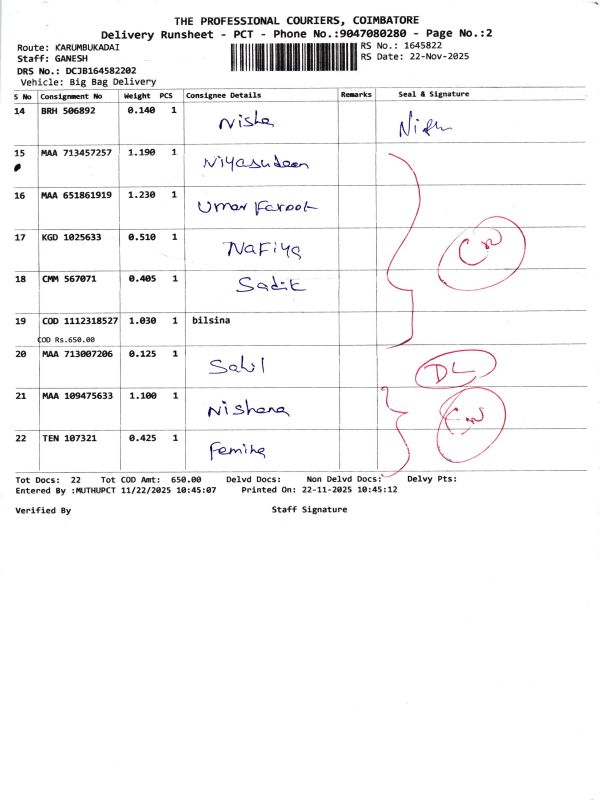 THE PROFESSIONAL COURIERS, COIMBATORE
Delivery Runsheet - PCT - Phone No.:9047080280 - Page No.:2
Route: KARUMBUKADAI RS No.: 1645822
Staff: GANESH RS Date: 22-Nov-2025
DRS No.: DCJB164582202
Vehicle: Big Bag Delivery
S No Consignment No Weight PCS Consignee Details Remarks Seal & Signature
14 BRH 506892 0.140 1 Nisha
15 MAA 713457257 1.190 1 Niyasudeen
16 MAA 651861919 1.230 1 Umar Farook
17 KGD 1025633 0.510 1 Nafiya
18 CMM 567071 0.405 1 Sadik
19 COD 1112318527 1.030 1 bilsina
COD Rs.650.00
20 MAA 713007206 0.125 1 Sahil DL
21 MAA 109475633 1.100 1 Nishana
22 TEN 107321 0.425 1 Femina
Tot Docs: 22 Tot COD Amt: 650.00 Delvd Docs: Non Delvd Docs: Delvy Pts:
Entered By :MUTHUPCT 11/22/2025 10:45:07 Printed On: 22-11-2025 10:45:12
Verified By Staff Signature